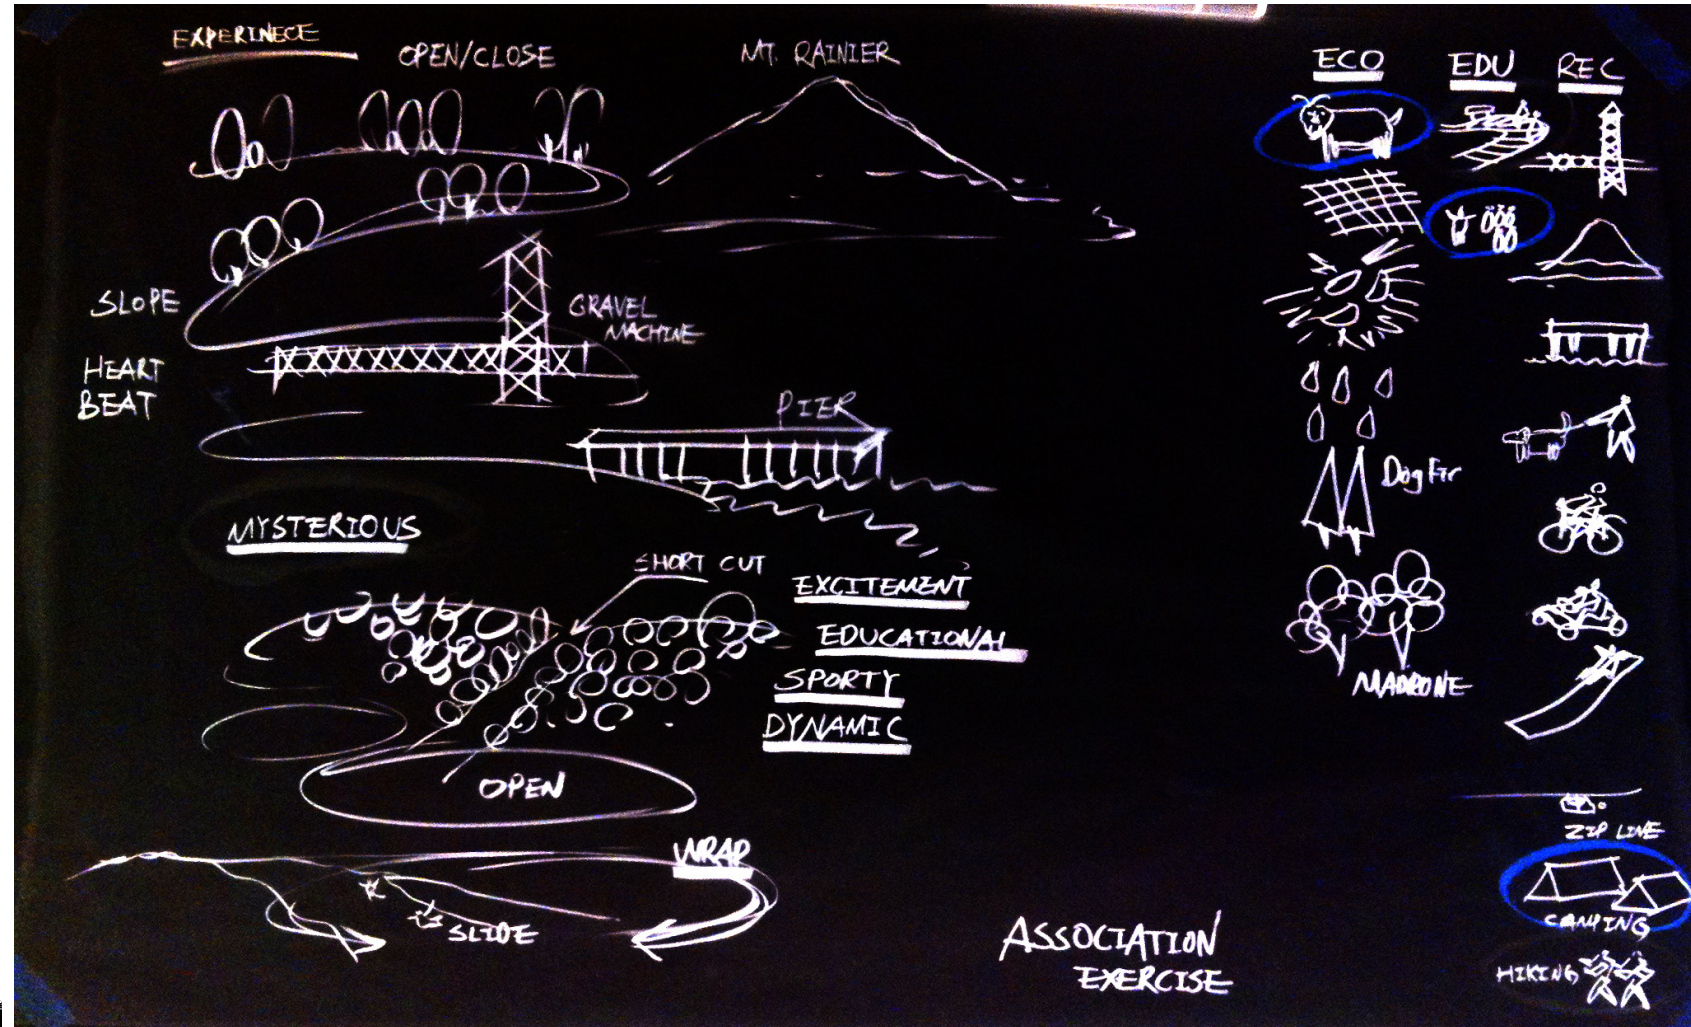 EXPERINECE
OPEN/CLOSE
MT. RAINIER
SLOPE
GRAVEL
MACHINE
HEART
BEAT
PIER
MYSTERIOUS
SHORT CUT
EXCITEMENT
EDUCATIONAL
SPORTY
DYNAMIC
OPEN
WRAP
SLIDE
ASSOCIATION
EXERCISE
ECO
EDU
REC
Dog Fir
MADRONE
ZIP LINE
CAMPING
HIKING